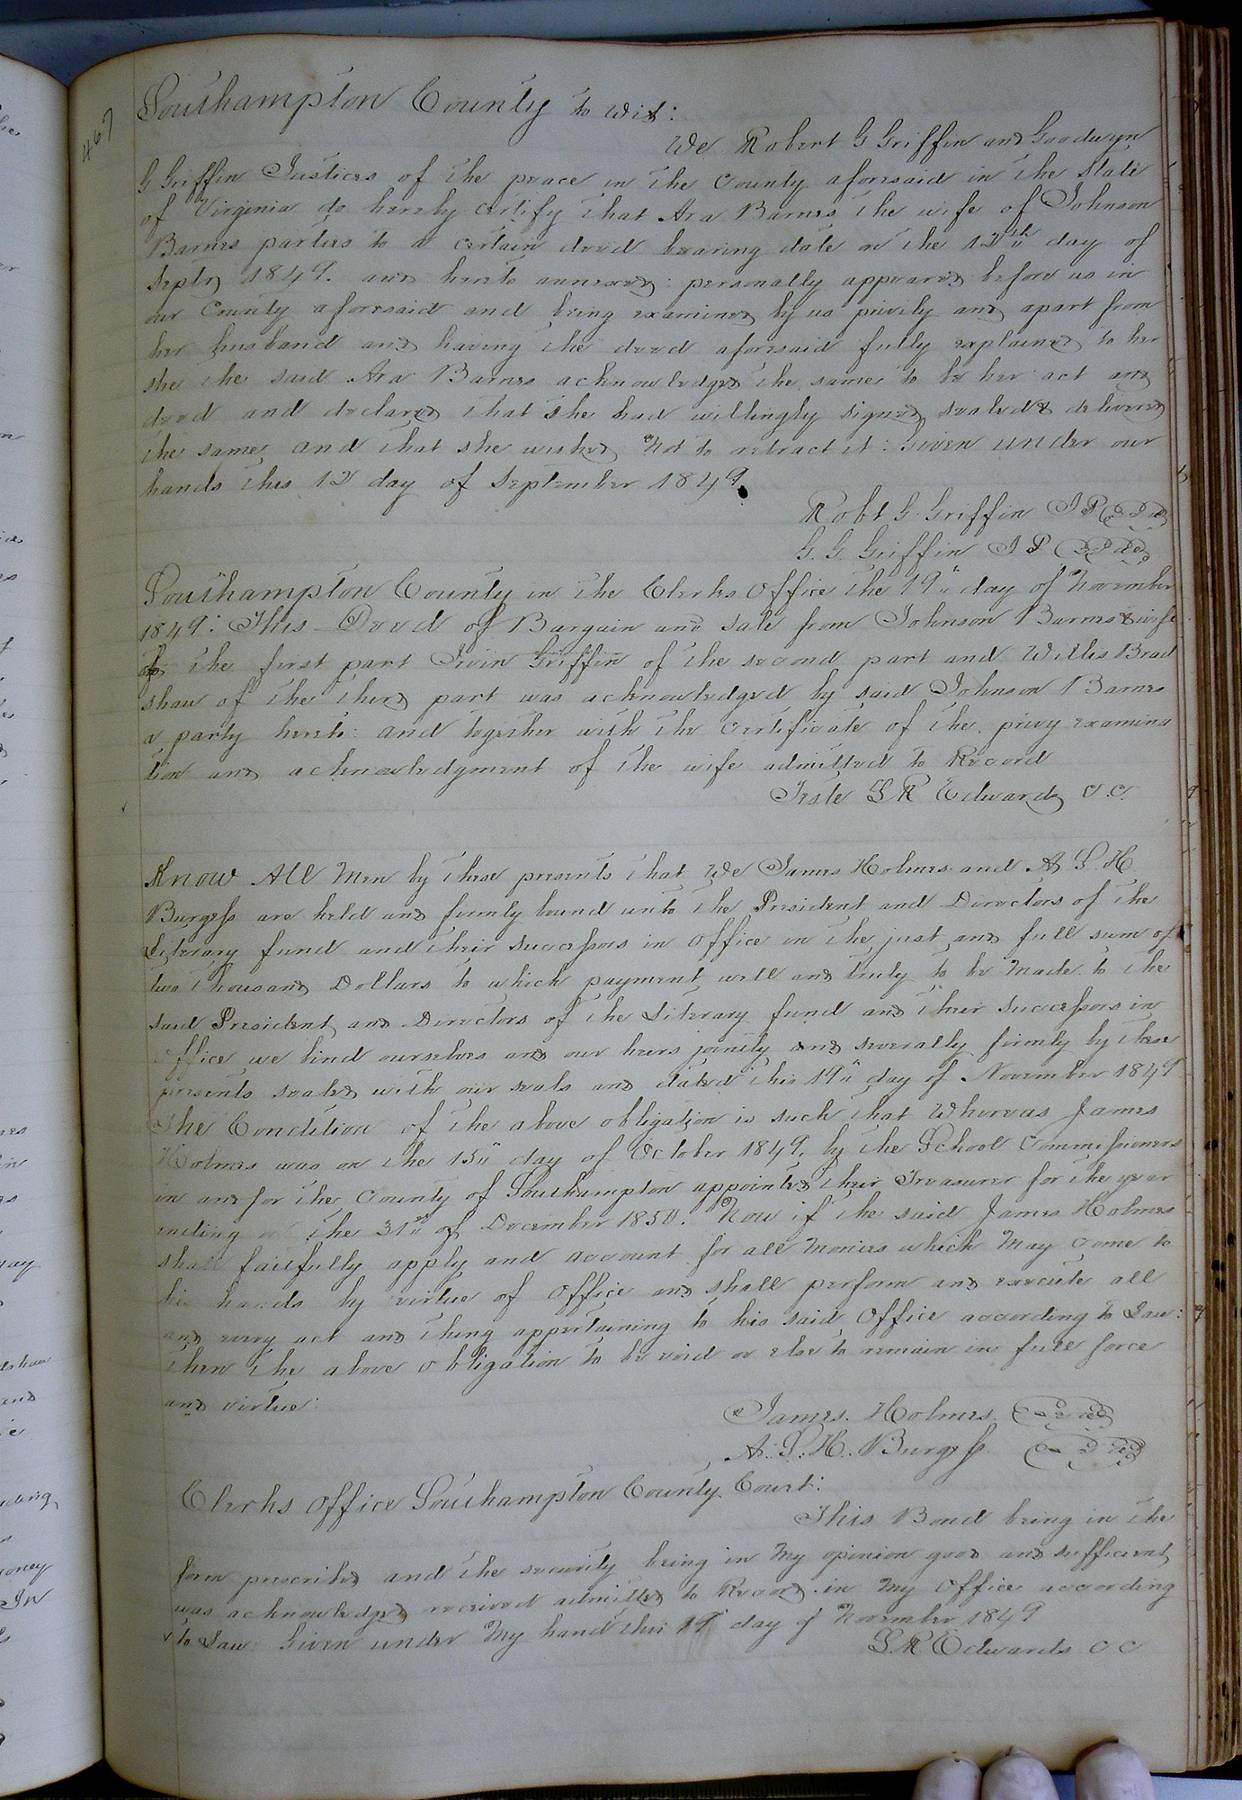 467
Southampton County to wit:
We Robert G Griffin and Goodwyn
G Griffin Justices of the peace in the County aforesaid in the State
of Virginia do hereby certify that Ara Barnes the wife of Johnson
Barnes parties to a certain deed bearing date on the 12th day of
Septr 1849. and hereto annexed: personally appeared before us in
our County aforesaid and being examined by us privily and apart from
her husband and having the deed aforesaid fully explained to her
she the said Ara Barnes acknowledged the same to be her act and
deed and declared that she had willingly signed sealed & delivered
the same and that she wished not to retract it: Given under our
hands this 12 day of September 1849.
Robt G. Griffin J P Seal
G. G. Griffin J P Seal
Southampton County in the Clerks Office the 19" day of November
1849: This Deed of Bargain and Sale from Johnson Barnes & wife
of the first part Irvin Griffin of the second part and Willis Brad
shaw of the third part was acknowledged by said Johnson Barnes
a party hereto: and together with the certificate of the privy examina
tion and acknowledgment of the wife admitted to Record
Teste L R Edwards C. C.
Know All Men by these presents that We James Holmes and A S H
Burgess are held and firmly bound unto the President and Directors of the
Literary fund and their successors in office in the just and full sum of
two thousand Dollars to which payment well and truly to be Made to the
said President and Directors of the Literary fund and their successors in
office we bind ourselves and our heirs jointly and severally firmly by these
presents sealed with our seals and dated this 19" day of November 1849
The Condition of the above obligation is such that Whereas James
Holmes was on the 15" day of October 1849. by the School Commissioners
in and for the County of Southampton appointed their Treasurer for the year
ending on the 31st of December 1850. Now if the said James Holmes
shall faitfully apply and account for all Monies which May come to
his hands by virtue of office and shall perform and execute all
and every act and thing appertaining to his said Office according to Law:
then the above obligation to be void or else to remain in full force
and virtue:
James Holmes Seal
A. S. H. Burgess Seal
Clerks Office Southampton County Court:
This Bond being in the
form prescribed and the security being in My opinion good and sufficient
was acknowledged received admitted to Record in My office according
to Law: Given under My hand this 19" day of November 1849
L R Edwards C C